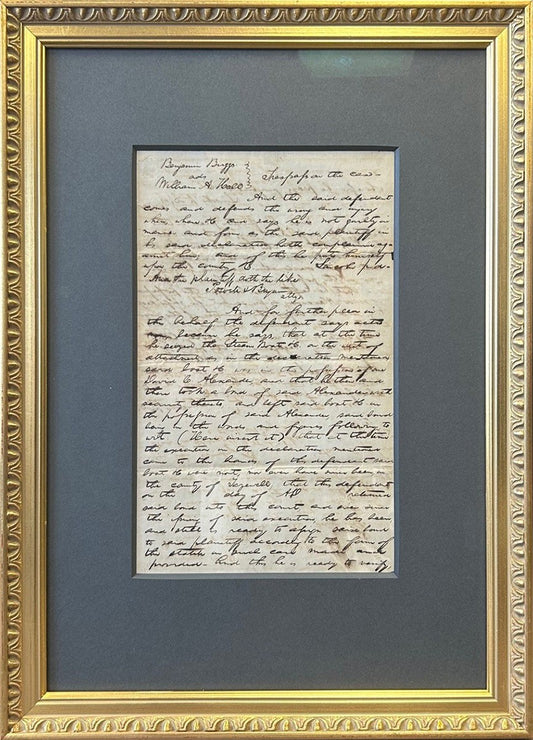 Benjamin Briggs
ads
William A. Hall
Trespass on the case
And the said defendant
comes and defends the wrong and injury
when where &c and says he is not guilty in
manner and form as the said plaintiff in
his said declaration hath complained
against him, and of this he puts himself
upon the country &c Lincoln p.d.
And the plaintiff doth the like
&
And for further plea in
this behalf the defendant says actio
non because he says that at the time
he seized the Steam Boat &c on the writ of
attachment as in the declaration mentioned
said boat &c was in the possession of one
David C Alexander, and that he then and
there took a bond of said Alexander with
security thereto and left said boat &c in
the possession of said Alexander said bond
being in the words and figures following to
wit (Here insert it) that at the time
the execution in the declaration mentioned
came to the hands of this defendant
boat &c were not, nor ever have since been in
the county of Tazewell that this defendant
on the day of AD returned
said bond into this court and ever since
the of said execution, he has been
and still is ready to assign said bond
to said plaintiff according to the form of
the statute in such case made and
provided And this he is ready to verify